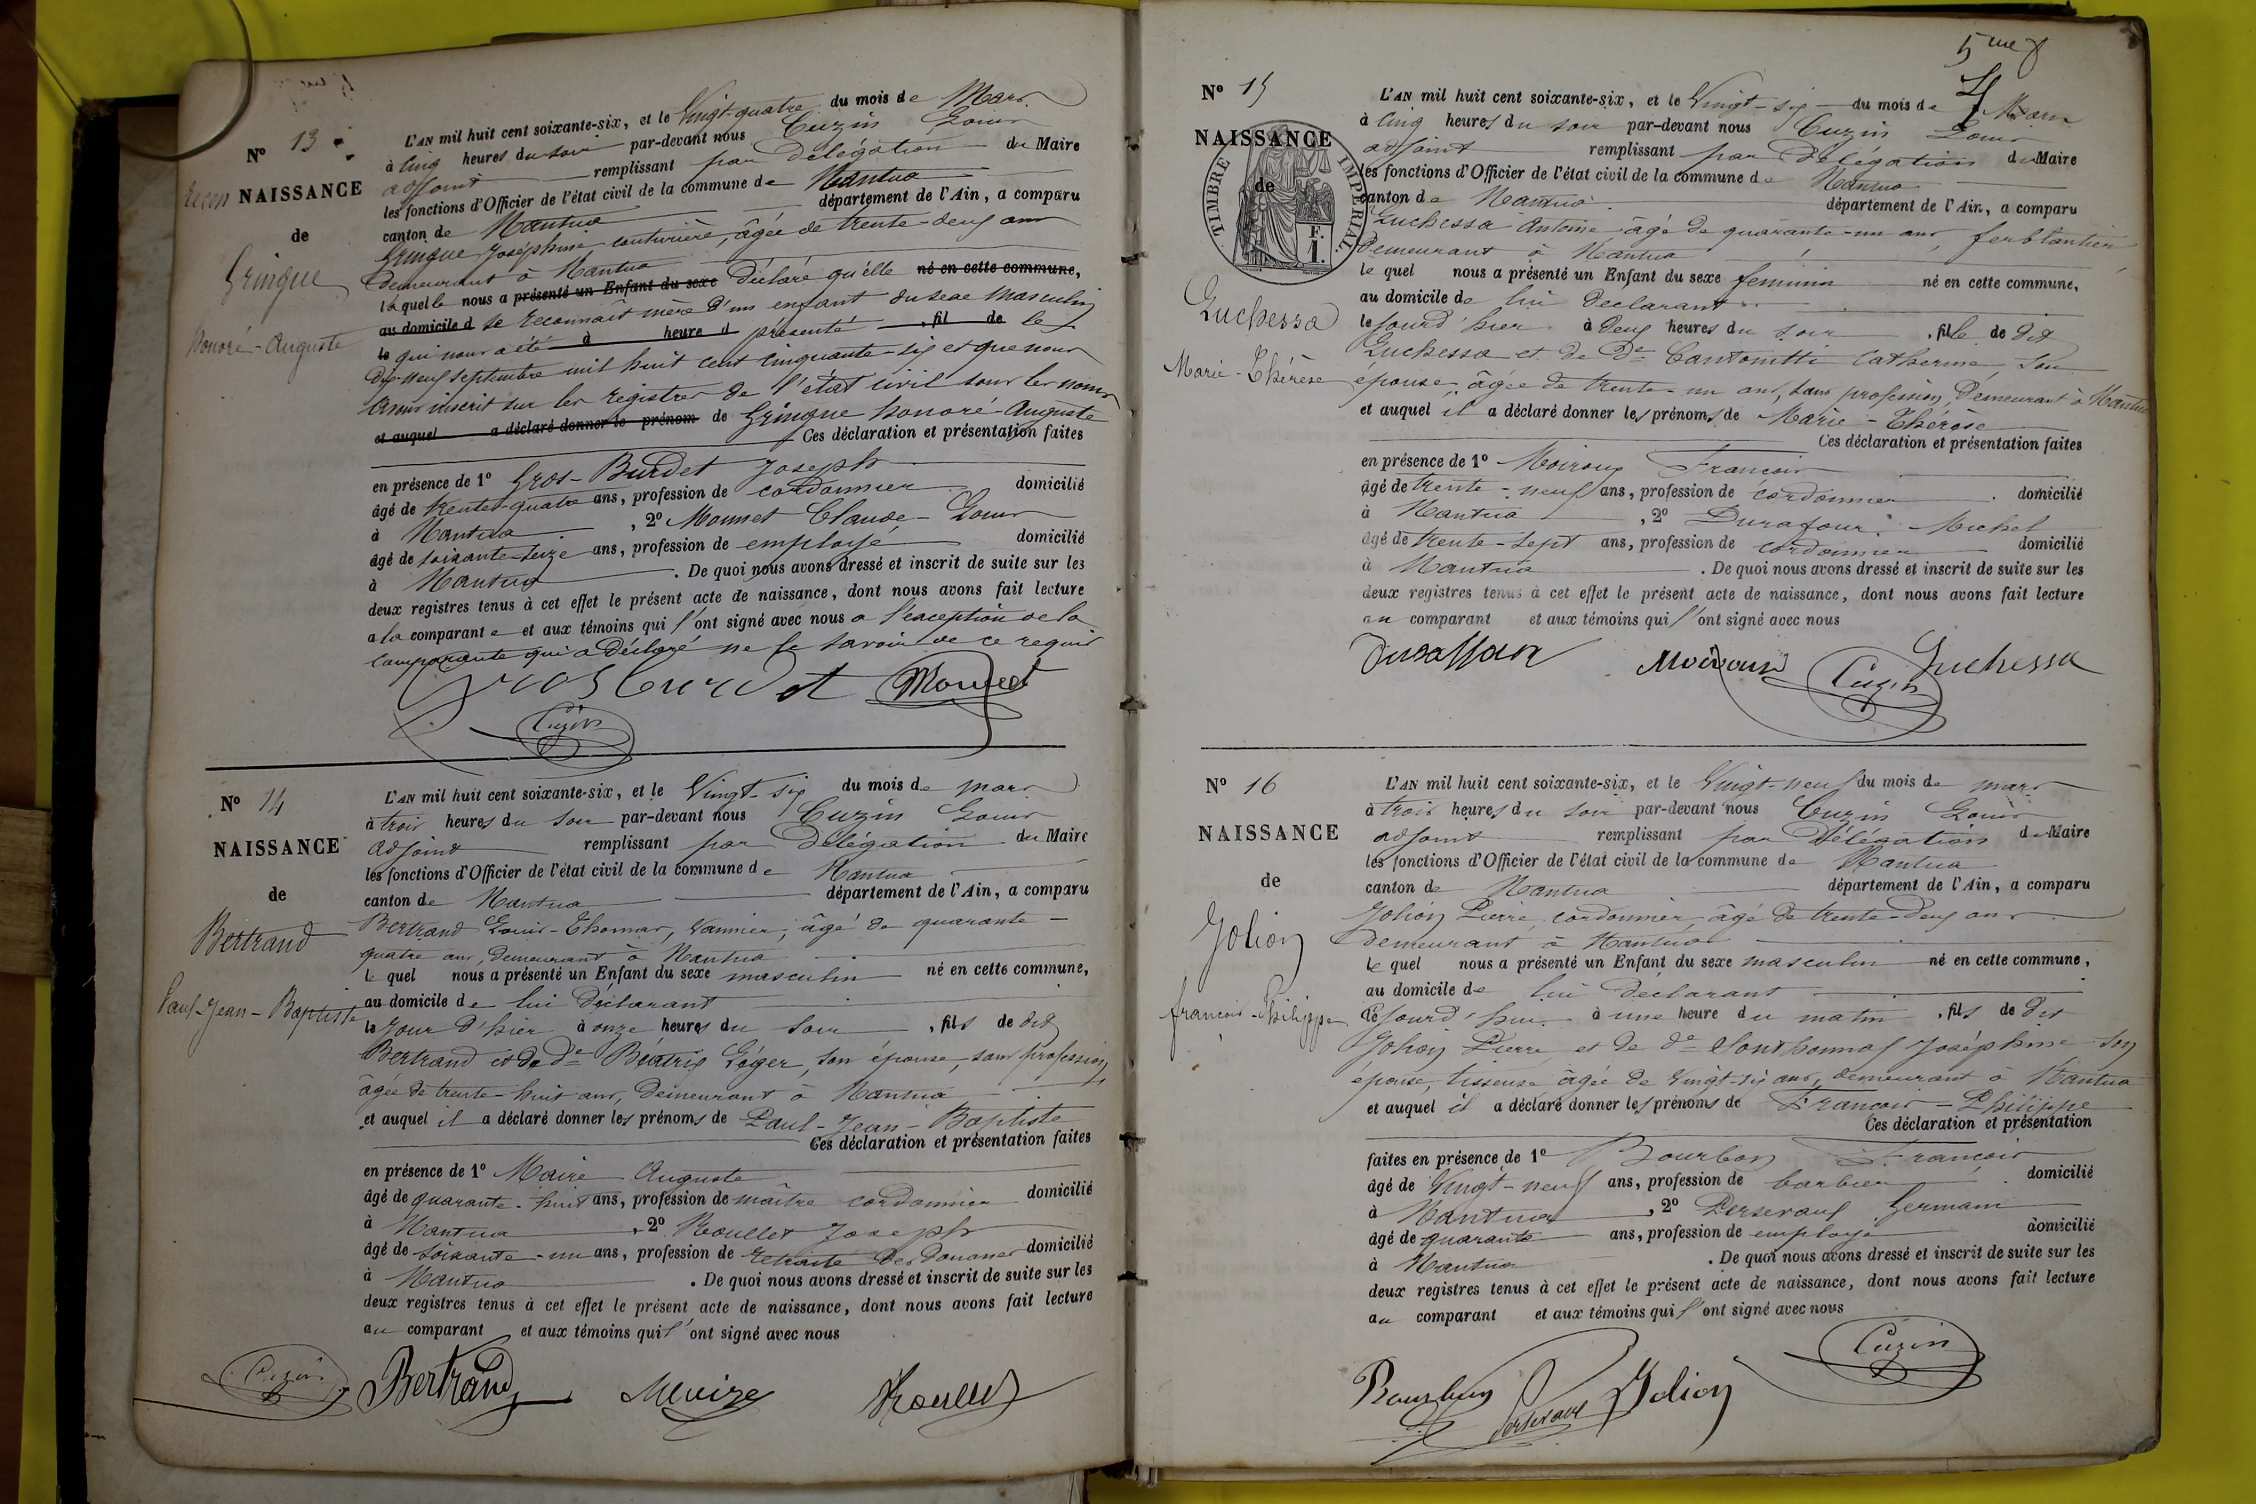 N° 13
Recon NAISSANCE
de
Gringue
Honoré-Auguste
L'AN mil huit cent soixante-six, et le Vingt-quatre du mois de Mars
à cinq heures du soir par-devant nous Cuzin Louis
adjoint remplissant par délégation du Maire
les fonctions d'Officier de l'état civil de la commune de Nantua
canton de Nantua département de l'Ain, a comparu
Gringue Joséphine couturière, âgée de trente-deux ans
demeurant à Nantua
laquelle nous a présenté un Enfant du sexe déclaré qu'elle né en cette commune,
au domicile d se reconnaît mère d'un enfant du sexe masculin
le qui nous a été à heure d présenté , fil de le
dix-neuf septembre mil huit cent cinquante-six et que nous
avons inscrit sur les registres de l'état civil sous les noms
et auquel a déclaré donner le prénom de de Gringue honoré-Auguste
Ces déclaration et présentation faites
en présence de 1° Gros-Burdet Joseph
âgé de trente-quatre ans, profession de cordonnier domicilié
à Nantua , 2° Mounet Claude-Louis
âgé de soixante-seize ans, profession de employé domicilié
à Nantua . De quoi nous avons dressé et inscrit de suite sur les
deux registres tenus à cet effet le présent acte de naissance, dont nous avons fait lecture
a la comparante et aux témoins qui l'ont signé avec nous a l'exception de la
comparante qui a déclaré ne le savoir de ce requis
Grosburdet Mounet
Cuzin
N° 14
NAISSANCE
de
Bertrand
Paul-Jean-Baptiste
L'AN mil huit cent soixante-six, et le Vingt-six du mois de mars
à trois heures du soir par-devant nous Cuzin Louis
adjoint remplissant par délégation du Maire
les fonctions d'Officier de l'état civil de la commune de Nantua
canton de Nantua département de l'Ain, a comparu
Bertrand Louis-Thomas, Vannier, âgé de quarante-
quatre ans, demeurant à Nantua
le quel nous a présenté un Enfant du sexe masculin né en cette commune,
au domicile de lui déclarant
le Jour d'hier à onze heures du soir , fils de dit
Bertrand et de De Béatrix Léger, son épouse, sans profession
âgée de trente-huit ans, demeurant à Nantua
et auquel il a déclaré donner les prénoms de Paul-Jean-Baptiste
Ces déclaration et présentation faites
en présence de 1° Maire Auguste
âgé de quarante-huit ans, profession de maître cordonnier domicilié
à Nantua , 2° Roullet Joseph
âgé de soixante-un ans, profession de retraité des Douanes domicilié
à Nantua . De quoi nous avons dressé et inscrit de suite sur les
deux registres tenus à cet effet le présent acte de naissance, dont nous avons fait lecture
au comparant et aux témoins qui l'ont signé avec nous
Cuzin Bertrand Maire Roullet
5me
N° 15
NAISSANCE
TIMBRE IMPÉRIAL
de
F.
1.
Luchessa
Marie-Thérèse
L'AN mil huit cent soixante-six, et le Vingt-six du mois de Mars
à cinq heures du soir par-devant nous Cuzin Louis
adjoint remplissant par Délégation du Maire
les fonctions d'Officier de l'état civil de la commune de Nantua
canton de Nantua département de l'Ain, a comparu
Luchessa Antoine âgé de quarante-un ans, ferblantier
demeurant à Nantua
le quel nous a présenté un Enfant du sexe feminin né en cette commune,
au domicile de lui declarant
le jourd'hier à deux heures du soir , fille de dit
Luchessa et de De Cantonitti Catherine, son
épouse âgée de trente-un ans, sans profession, Demeurant à Nantua
et auquel il a déclaré donner les prénoms de Marie-Thérèse
Ces déclaration et présentation faites
en présence de 1° Moiroux Francois
âgé de trente-neuf ans, profession de cordonnier domicilié
à Nantua , 2° Durafour Michel
âgé de trente-sept ans, profession de cordonnier domicilié
à Nantua . De quoi nous avons dressé et inscrit de suite sur les
deux registres tenus à cet effet le présent acte de naissance, dont nous avons fait lecture
au comparant et aux témoins qui l'ont signé avec nous
Moiroux Cuzin Luchessa
N° 16
NAISSANCE
de
Jolion
francois-Philippe
L'AN mil huit cent soixante-six, et le Vingt-neuf du mois de mars
à trois heures du soir par-devant nous Cuzin Louis
adjoint remplissant par Délégation du Maire
les fonctions d'Officier de l'état civil de la commune de Nantua
canton de Nantua département de l'Ain, a comparu
Jolion Pierre, cordonnier âgé de trente-deux ans
demeurant à Nantua
le quel nous a présenté un Enfant du sexe masculin né en cette commune,
au domicile de lui déclarant
Cejourd'hui à une heure du matin , fils de dit
Jolion Pierre et de de Sonthonnaf Joséphine son
épouse, tisseuse âgée de vingt-six ans, demeurant à Nantua
et auquel il a déclaré donner les prénoms de Francois-Philippe
Ces déclaration et présentation
faites en présence de 1° Bourbon Francois
âgé de Vingt-neuf ans, profession de barbier domicilié
à Nantua , 2° Perseraul Germain
âgé de quarante ans, profession de employé domicilié
à Nantua . De quoi nous avons dressé et inscrit de suite sur les
deux registres tenus à cet effet le présent acte de naissance, dont nous avons fait lecture
au comparant et aux témoins qui l'ont signé avec nous
Cuzin
Bourbon Perseraul Jolion